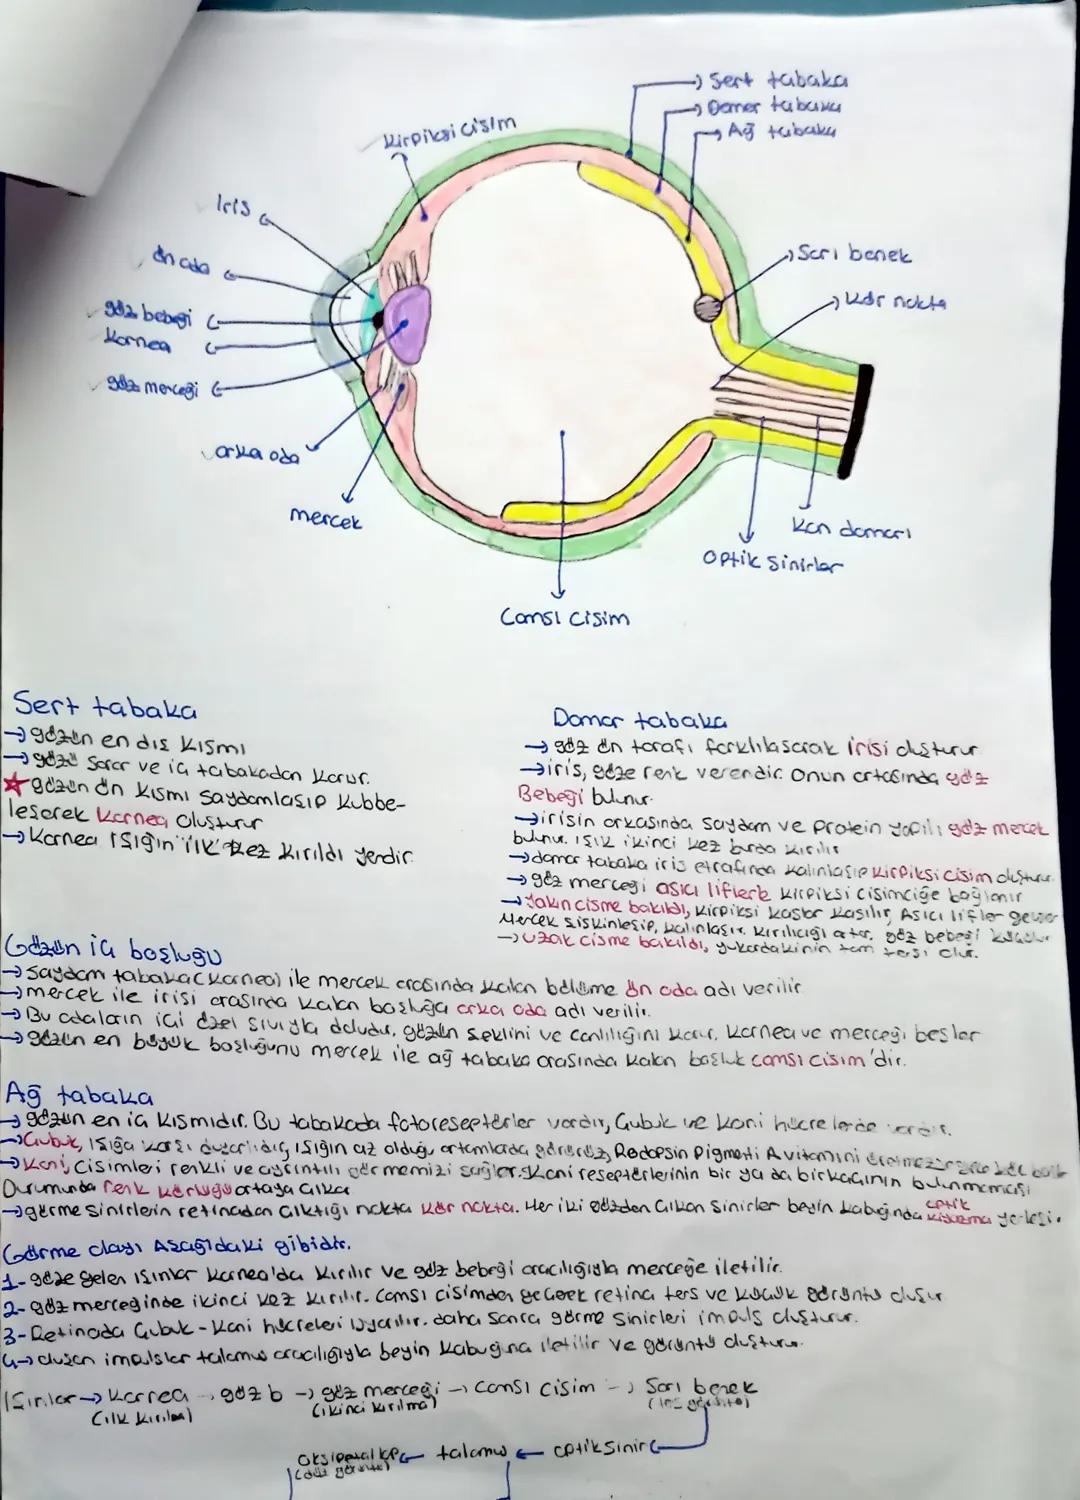 Sert tabaka
Damar tabaka
Ağ tabaka
Kirpiksi cisim
İris
ön oda
göz bebeği
Kornea
göz merceği
arka oda
mercek
Sarı benek
Kör nokta
Kan damarı
Optik Sinirler
Camsı cisim
Sert tabaka
→ gözün en dış kısmı
→ gözü sarar ve iç tabakadan korur.
★ gözün ön kısmı saydamlaşıp kubbe-
leşerek kornea oluşturur
→ Kornea ışığın ilk kez kırıldı yerdir
Damar tabaka
→ göz ön tarafı farklılaşarak irisi oluşturur
→ iris, göze renk verendir. Onun ortasında göz
Bebeği bulunur.
→ irisin arkasında saydam ve protein yapılı göz mercek
bulunur. ışık ikinci kez burda kırılır
→ damar tabaka iris etrafında kalınlaşıp kirpiksi cisim oluşturur.
→ göz merceği asıcı liflerle kirpiksi cisimciğe bağlanır
→ Yakın cisme bakıldı, kirpiksi kaslar kasılır, Asıcı lifler gevşer
Mercek şişkinleşip, kalınlaşır. kırılıcığı artar. göz bebeği
→ uzak cisme bakıldı, yukardakinin tam tersi olur.
Gözün iç boşluğu
→ Saydam tabaka (kornea) ile mercek arasında kalan bölüme ön oda adı verilir
→ mercek ile irisi arasında kalan boşluğa arka oda adı verilir.
→ Bu odaların içi özel sıvıyla doludur, gözün şeklini ve canlılığını korur, kornea ve merceği besler
→ gözün en büyük boşluğunu mercek ile ağ tabaka arasında kalan boşluk camsı cisim'dir.
Ağ tabaka
→ gözün en iç kısmıdır. Bu tabakada fotoreseptörler vardır, Çubuk ve koni hücrelerde vardır.
→ Çubuk, ışığa karşı duyarlıdır, ışığın az olduğu ortamlarda görürüz, Rodopsin Pigmenti A vitamini
→ Koni, cisimleri renkli ve ayrıntılı görmemizi sağlar. Koni reseptörlerinin bir ya da birkaçının bulunmaması
Durumunda renk körlüğü ortaya çıkar
→ görme sinirlerin retinadan çıktığı nokta kör nokta. Her iki gözden çıkan sinirler beyin kabuğında optik kiyazma yerleşi.
Görme olayı Aşağıdaki gibidir.
1- göze gelen ışınlar kornea'da kırılır ve göz bebeği aracılığıyla merceğe iletilir.
2- göz merceğinde ikinci kez kırılır. Camsı cisimden geçerek retina ters ve küçük görüntü oluşur
3- Retinada Çubuk-Koni hücreleri uyarılır. daha sonra görme sinirleri impuls oluşturur.
4→ oluşan impulslar talamus aracılığıyla beyin kabuğuna iletilir ve görüntü oluşturur.
Işınlar → Kornea → göz b → göz merceği → camsı cisim → Sarı benek
(ilk kırılma) (ikinci kırılma) (ters görüntü)
Oksipetal kp ← talamus ← optik sinir ←
(düz görüntü)